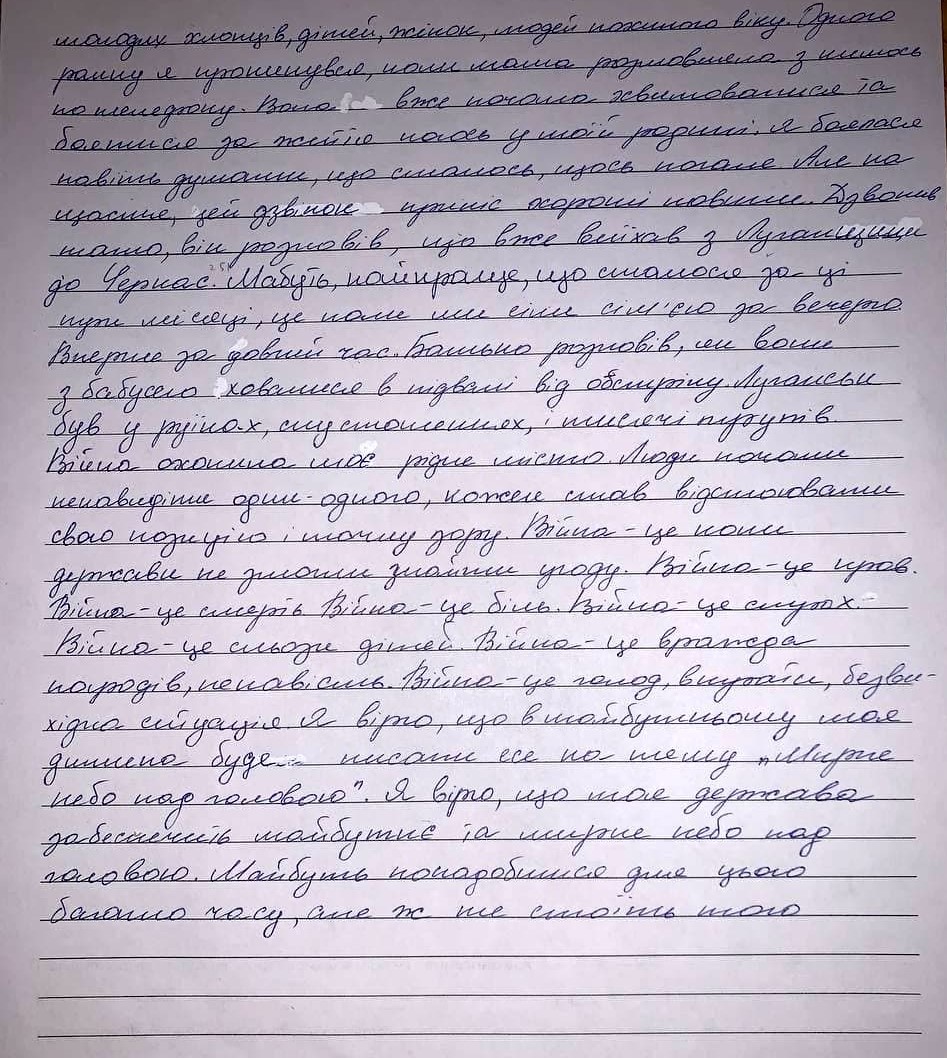 молодих хлопців, дітей, жінок, людей похилого віку. Одного
ранку я прокинувся, коли мама розмовляла з кимось
по телефону. Вона вже почала хвилюватися та
боятися за життя когось у моїй родині. Я боялася
навіть думати, що сталось, щось погане. Але на
щастя, цей дзвінок приніс хороші новини. Дзвонив
тато, він розповів, що вже виїхав з Луганщини
до Черкас. Мабуть, найкраще, що сталося за ці
пути місяці, це коли ми сіли сім'єю за вечерю
Вперше за довгий час. Батько розповів, як вони
з бабусею ховалися в підвалі від обстрілу. Луганськ
був у руїнах, спустошеннях, і тисячі трупів.
Війна охопила моє рідне місто. Люди почали
ненавидіти один-одного, кожен став відстоювати
свою позицію і точку зору. Війна - це коли
держави не змогли знайти угоду. Війна - це кров.
Війна - це смерть Війна - це біль. Війна - це смуток.
Війна - це сльози дітей. Війна - це вражда
народів, ненависть. Війна - це голод, вкутати, безви-
хідна ситуація. Я вірю, що в майбутньому моя
дитина буде писати есе на тему „Мирне
небо над головою". Я вірю, що моя держава
забеспечить майбутнє та мирне небо над
головою. Майбуть понадобится для цього
багато часу, але ж те стоїть того